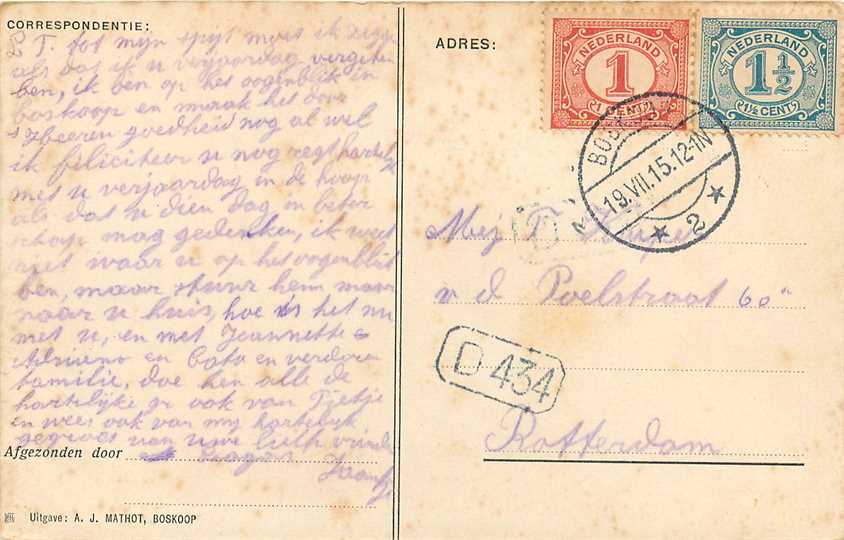 CORRESPONDENTIE:
L T. tot mijn spijt moet ik zegge
als dat ik u verjaardag vergeten
ben, ik ben op het oogenblik in
boskoop en maak het door
s Heeren goedheid nog al wel
ik feliciteer u nog regt hartelijk
met u verjaardag in de hoop
als dat u dien dag in beter
mag gedenken, ik weet
niet waar u op het oogenblik
ben, maar stuur hem maar
naar u huis, hoe is het nu
met u, en met Jeannette
Adriena en Cato en verdere
familie, doe hen alle de
hartelijke gr ook van Tietje
en wees ook van mij hartelijk
gegroet van uwe liefh vriendin
Afgezonden door
Jaantje
Uitgave: A. J. MATHOT, BOSKOOP
ADRES:
NEDERLAND
1
1 CENT
NEDERLAND
1½
1½ CENT
19.VII.15.12-1N
2
Mej
v d Poelstraat 60
D 434
Rotterdam